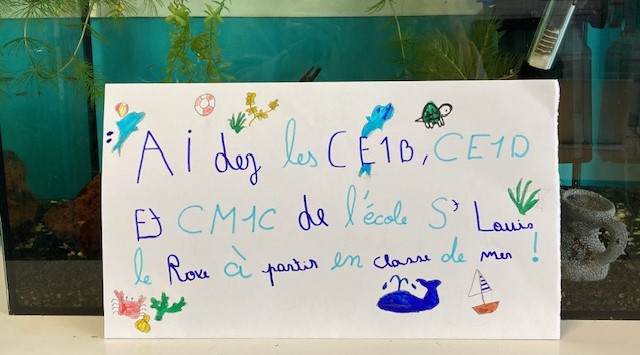 Aidez les CE1B, CE1D
Et CM1C de l'école St Louis
le Roxe à partir en classe de mer !